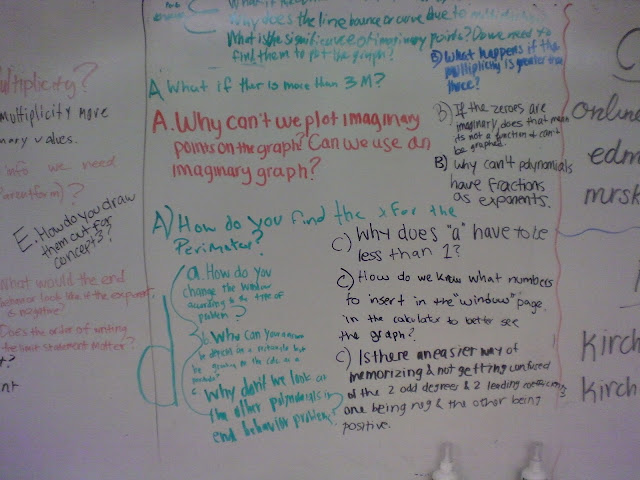 Why does the line bounce or curve due to
What is the significance of imaginary points? Do we need to
find them to plot the graph?
B) What happens if the
multiplicity is greater than
three?
A What if ther is more than 3 M?
A. Why can't we plot imaginary
points on the graph? Can we use an
imaginary graph?
B) If the zeroes are
imaginary, does that mean
its not a function & can't
be graphed.
B) why can't polynomials
have fractions
as exponents.
ultiplicity?
multiplicity more
nary values.
info we need
Parent form)?
E. How do you draw
them out for
concept 3?
What would the end
behavior look like if the exponent
is negative?
Does the order of writing
the limit statement matter?
t?
nt
A) How do you find the x for the
Perimeter?
d
a. How do you
change the window
according to the type of
problem?
b. Why can you
be
c. Why don't we look at
the other polynomials in
end behavior problems?
C) Why does "a" have to be
less than 1?
C) How do we know what numbers
to insert in the "window" page
in the calculator to better see
the graph?
C) Is there an easier way of
memorizing & not getting confused
of the 2 odd degrees & 2 leading coefficients
one being neg & the other being
positive.
C
online
edm
mrsk
kirch
kirch